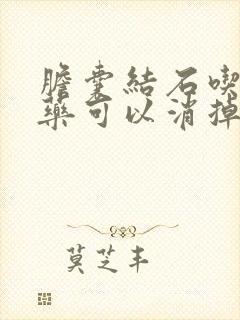 膽囊結石喫
藥可以消掉
莫芝丰